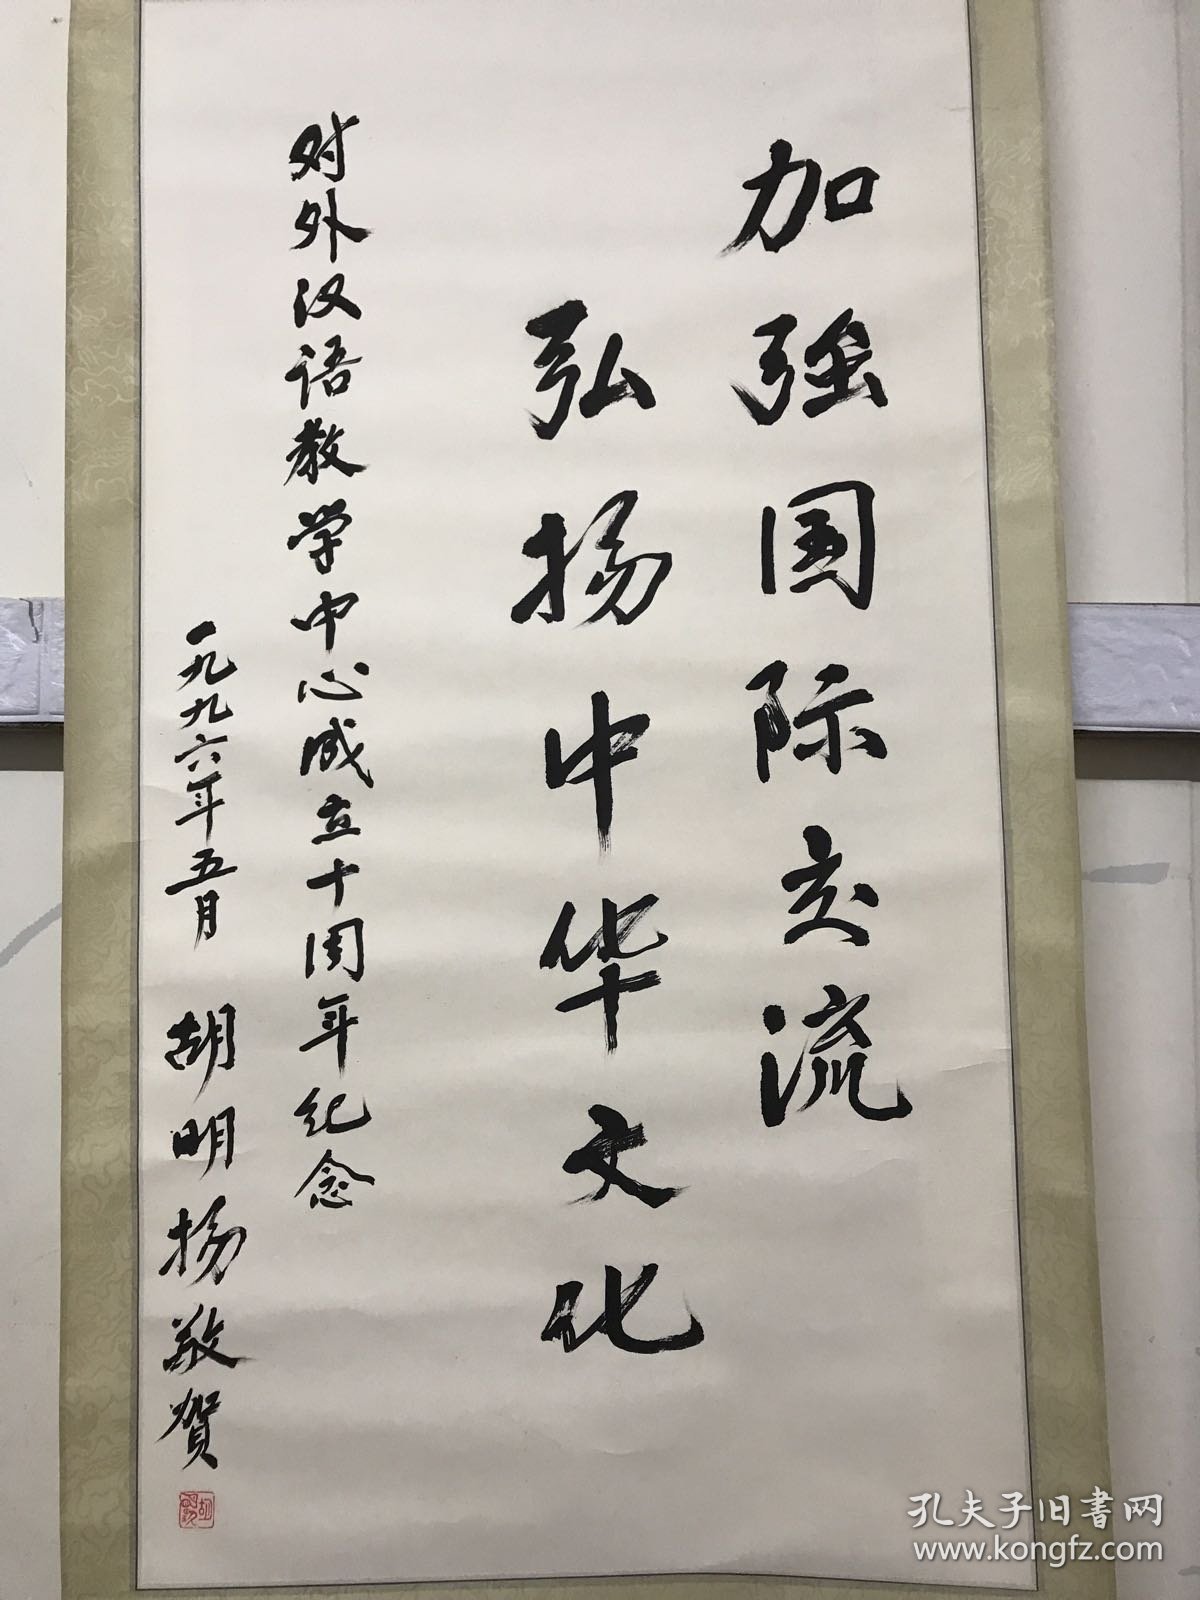 加强国际交流
弘扬中华文化
对外汉语教学中心成立十周年纪念
一九九六年五月 胡明扬敬贺
孔夫子旧书网
www.kongfz.com